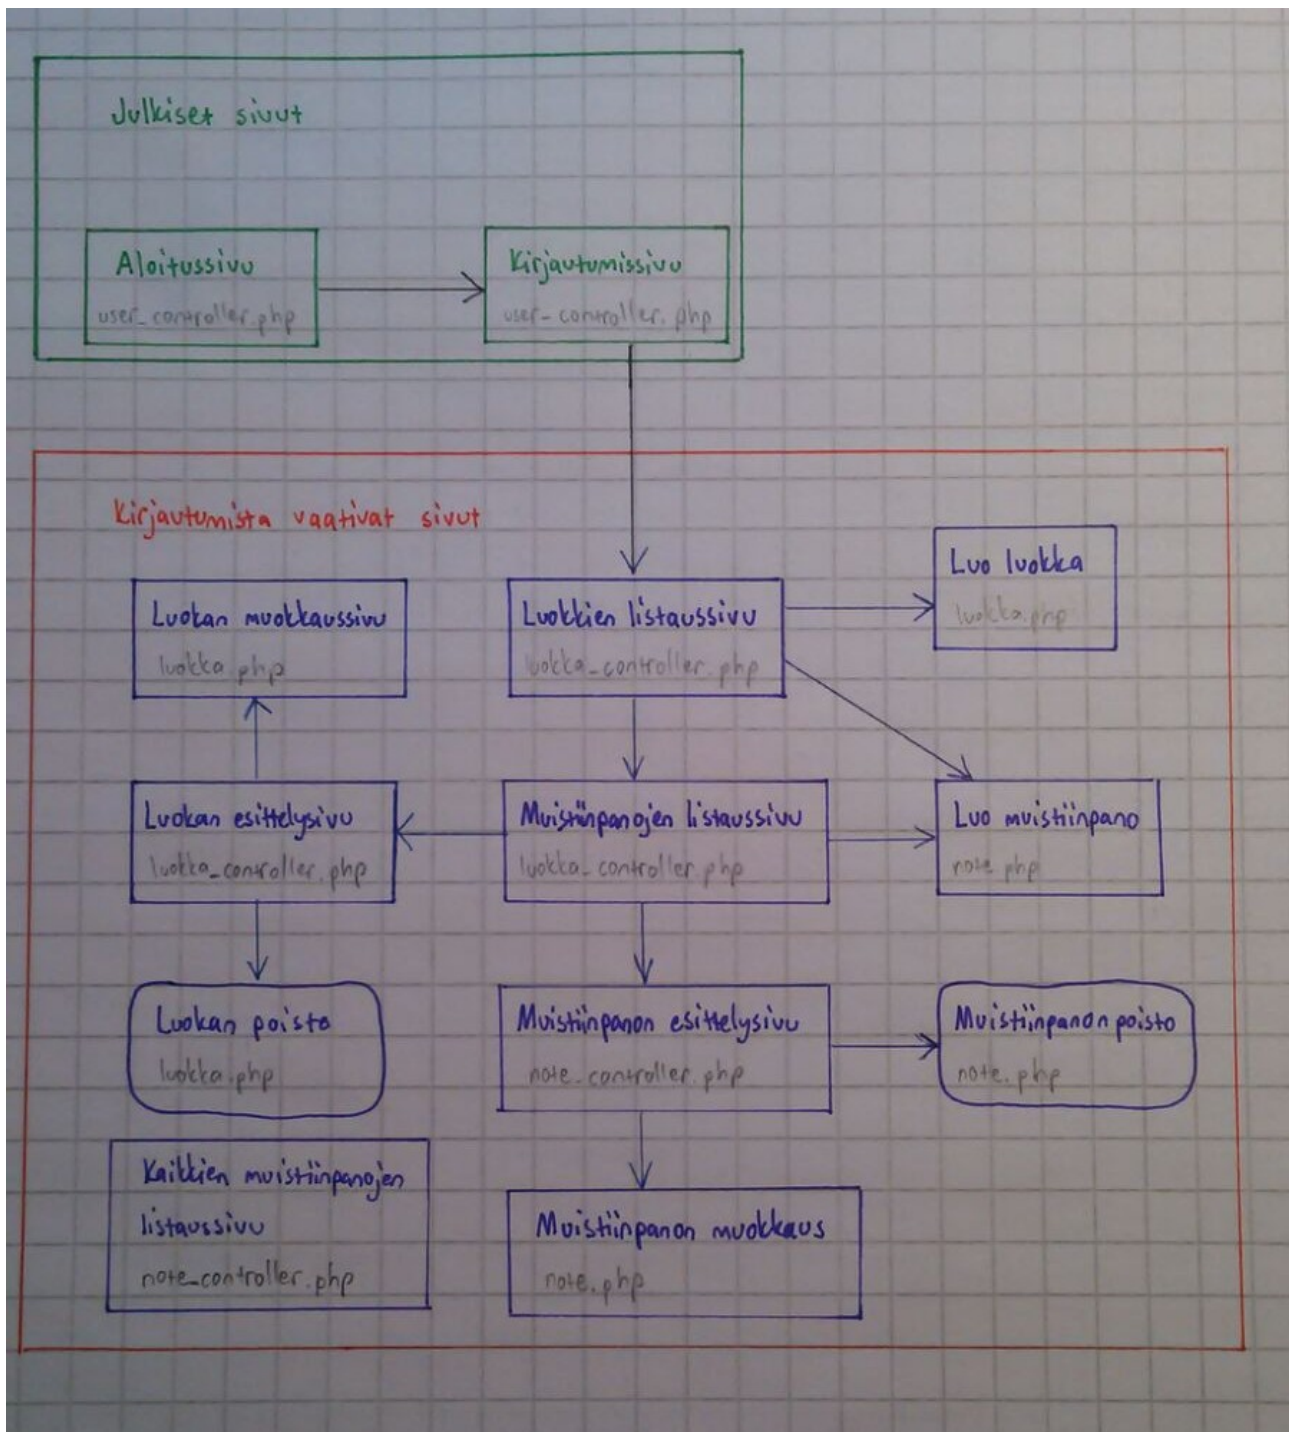 Julkiset sivut
Aloitussivu
user_controller.php
Kirjautumissivu
user_controller.php
Kirjautumista vaativat sivut
Luo luokka
luokka.php
Luokan muokkaussivu
luokka.php
Luokkien listaussivu
luokka_controller.php
Luokan esittelysivu
luokka_controller.php
Muistiinpanojen listaussivu
luokka_controller.php
Luo muistiinpano
note.php
Luokan poisto
luokka.php
Muistiinpanon esittelysivu
note_controller.php
Muistiinpanon poisto
note.php
Kaikkien muistiinpanojen
listaussivu
note_controller.php
Muistiinpanon muokkaus
note.php